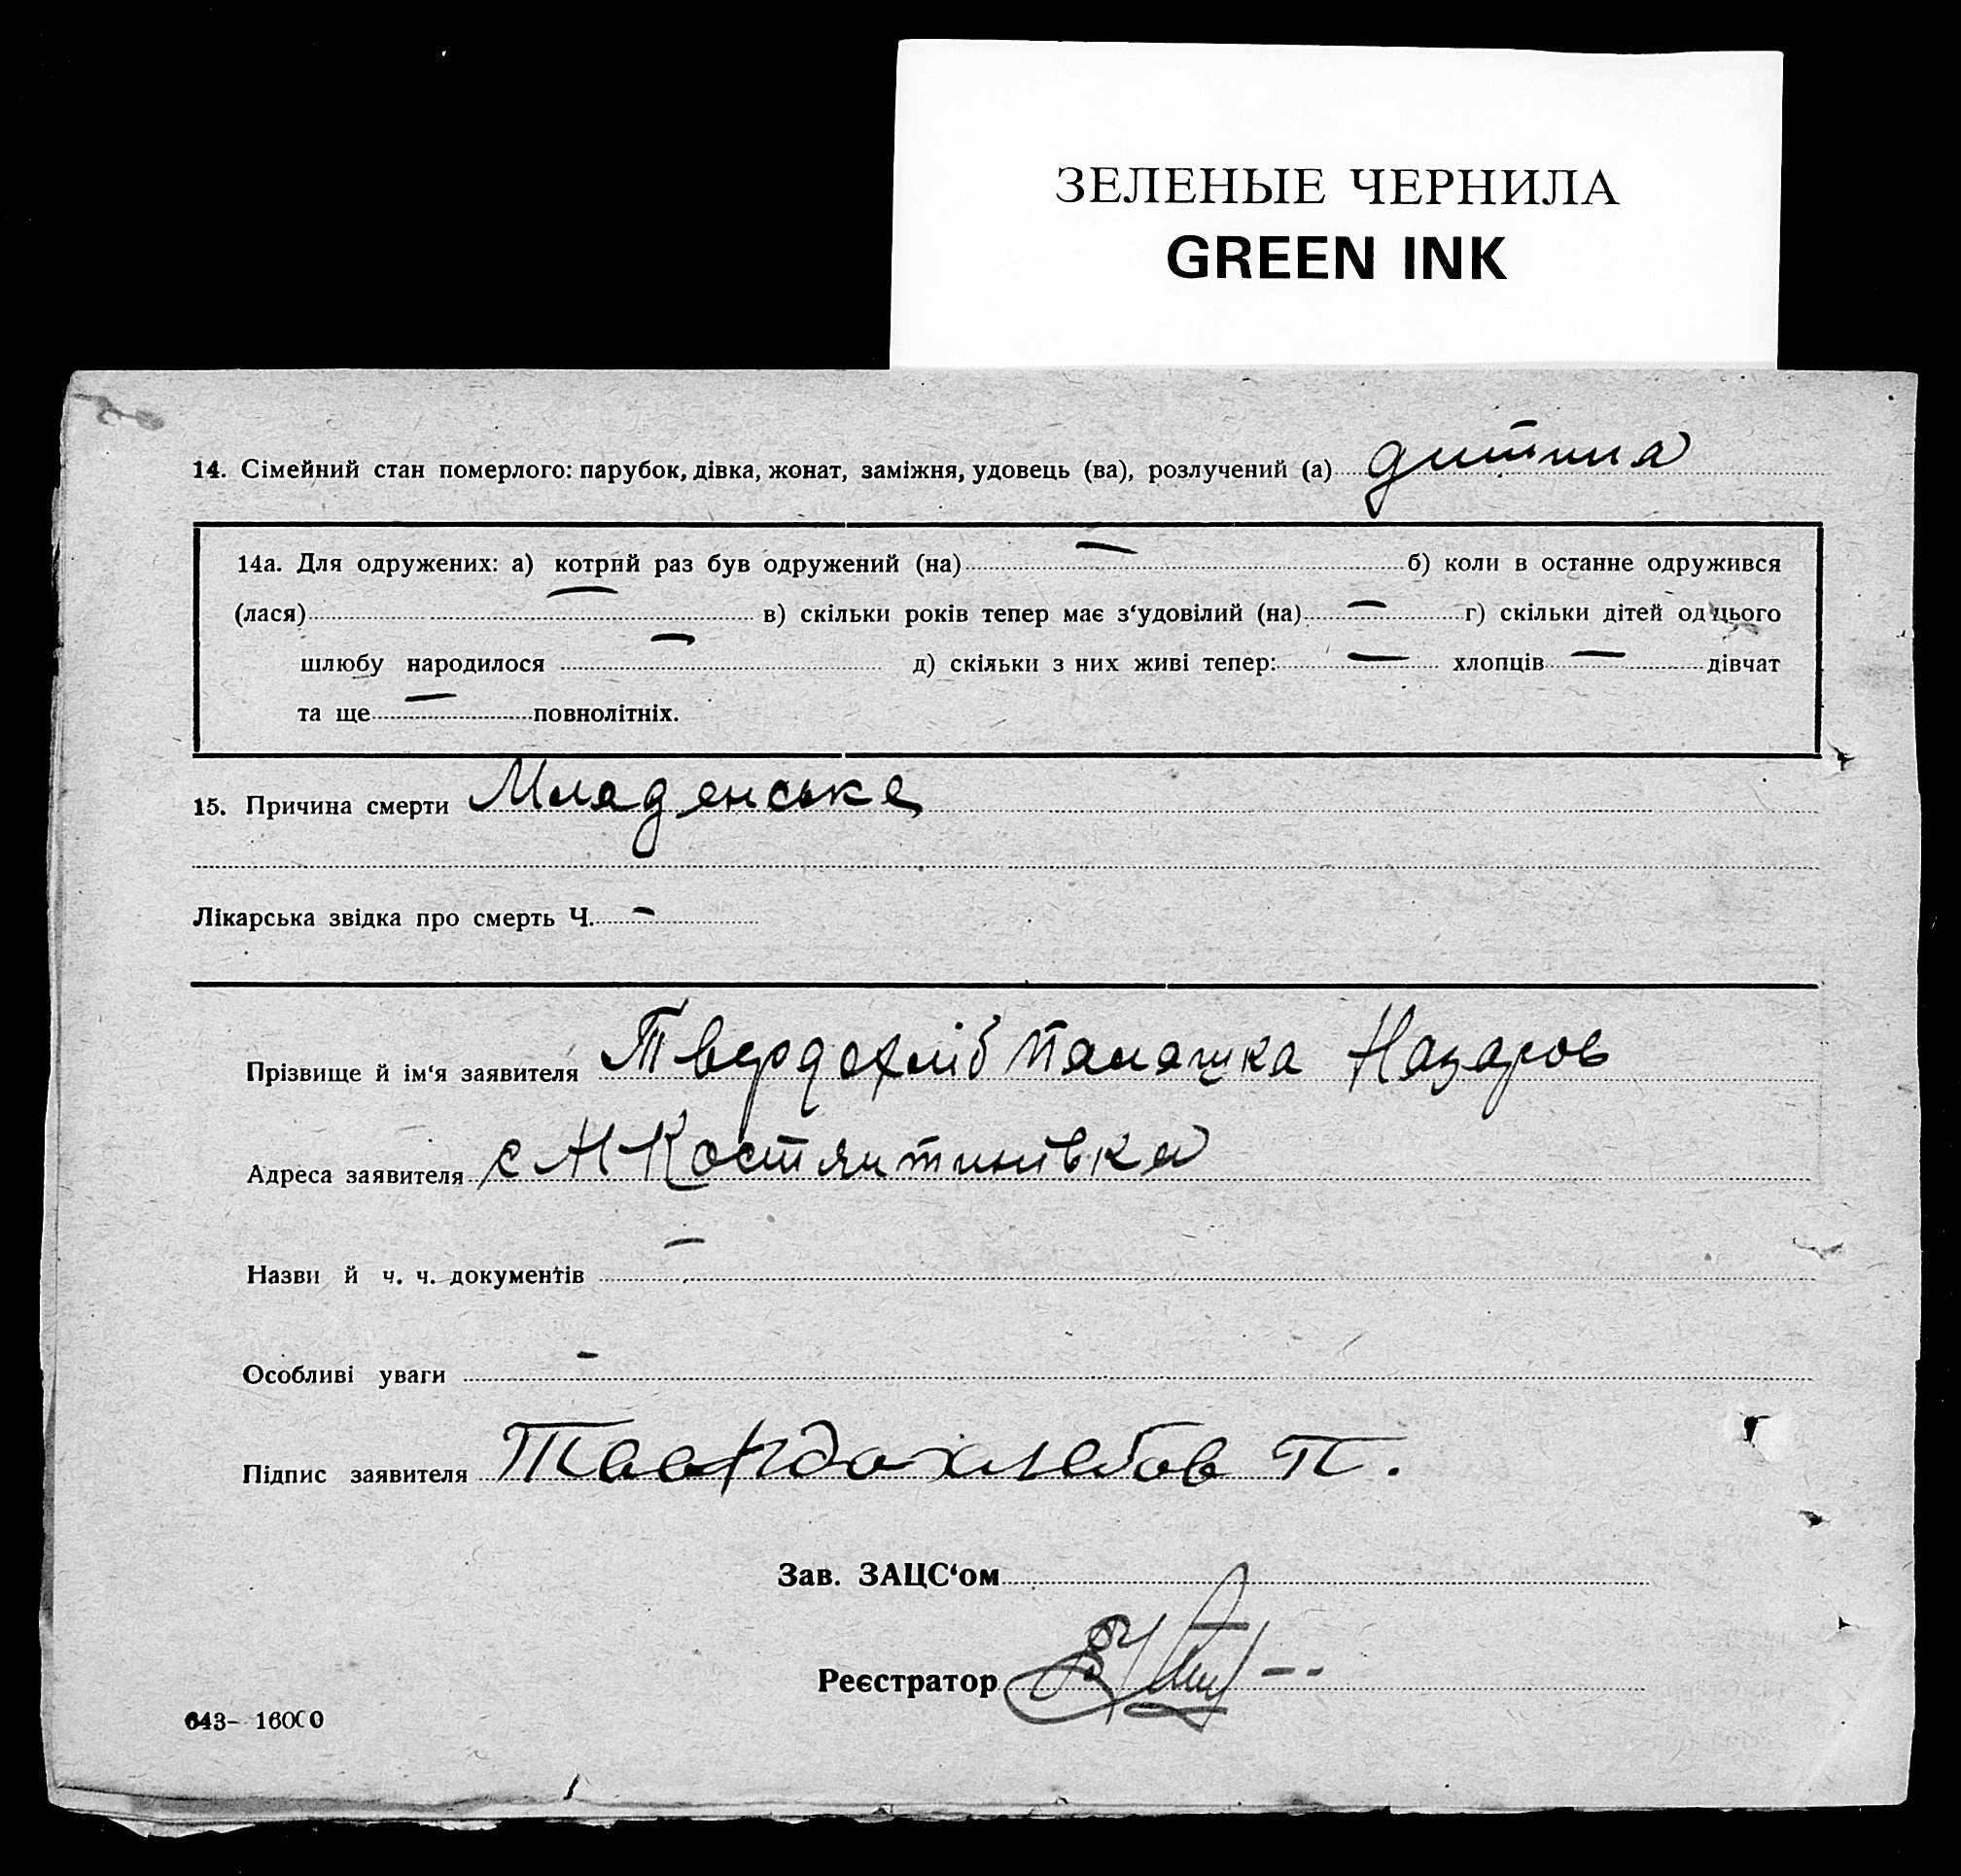 ЗЕЛЕНЫЕ ЧЕРНИЛА
GREEN INK
14. Сімейний стан померлого: парубок, дівка, жонат, заміжня, удовець (ва), розлучений (а) дитина
14а. Для одружених: а) котрий раз був одружений (на) — б) коли в останне одружився
(лася) — в) скільки років тепер має з‘удовілий (на) — г) скільки дітей од цього
шлюбу народилося — д) скільки з них живі тепер: — хлопців — дівчат
та ще — повнолітніх.
15. Причина смерти Младенське
Лікарська звідка про смерть Ч. —
Прізвище й ім‘я заявителя Твердохліб Палашка Назаров
Адреса заявителя с Н Костянтинівка
Назви й ч. ч. документів —
Особливі уваги —
Підпис заявителя Твердохлебов П.
Зав. ЗАЦС‘ом
Реєстратор
643- 16000